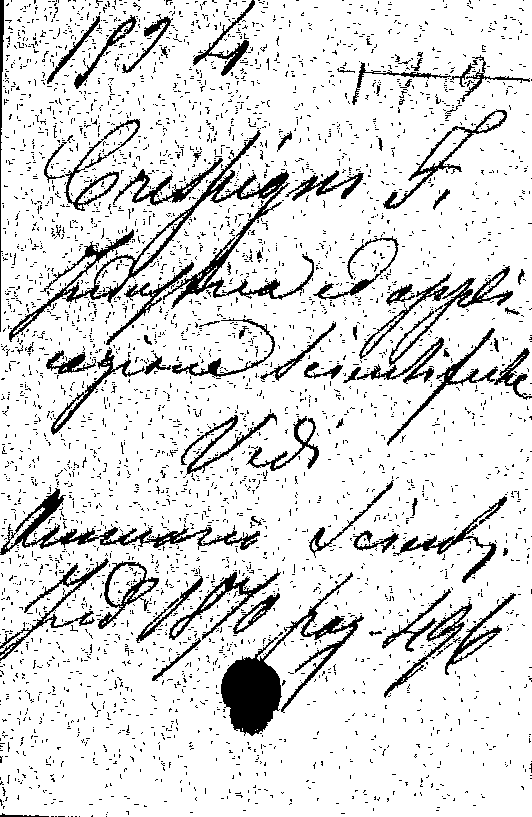 189.4 179
Crespigni F.
Industria ed appli-
cazione Scientifiche
Vedi
Annuario Scientif.
Ind 1870 pag. 496